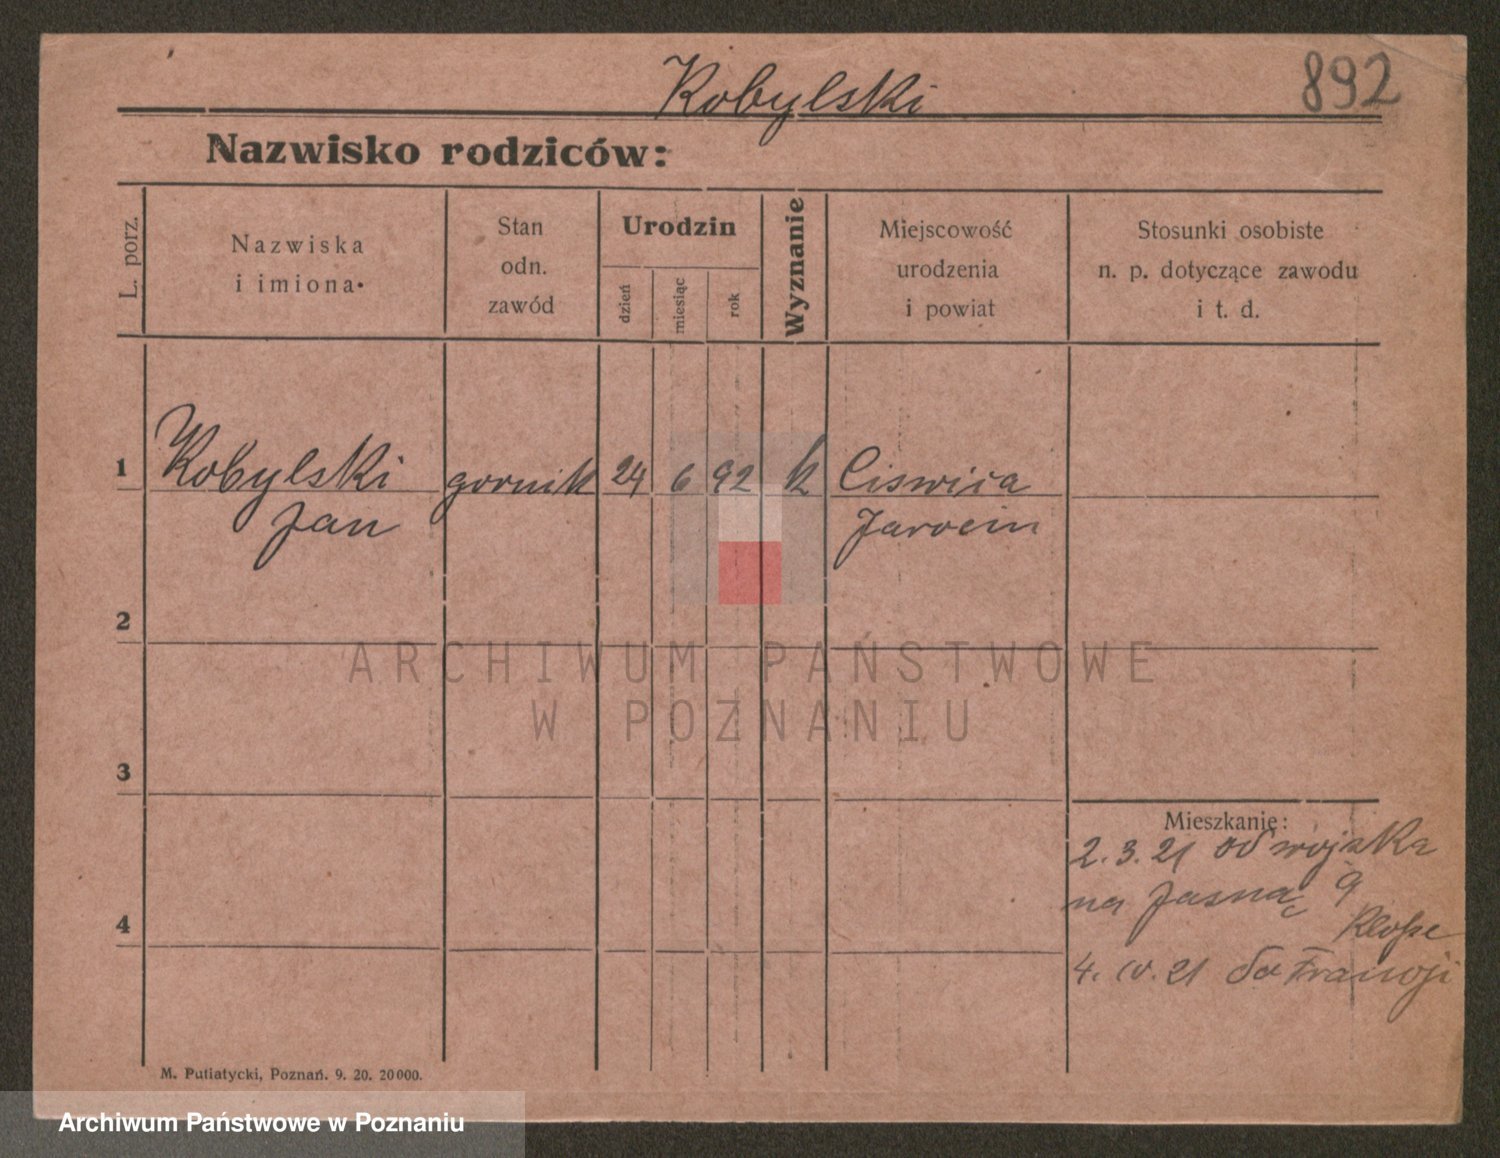 Kobylski
892
Nazwisko rodziców:
L. porz.
Nazwiska
i imiona
Stan
odn.
zawód
Urodzin
dzień
miesiąc
rok
Wyznanie
Miejscowość
urodzenia
i powiat
Stosunki osobiste
n. p. dotyczące zawodu
i t. d.
1
Kobylski
Jan
gornik
24
6
92
k
Ciswica
Jarocin
2
3
4
Mieszkanie:
2. 3. 21 od wojska
na Jasna 9
4. IV. 21 do Francji
M. Putiatycki, Poznań. 9. 20. 20000.
ARCHIWUM PAŃSTWOWE
W POZNANIU
Archiwum Państwowe w Poznaniu